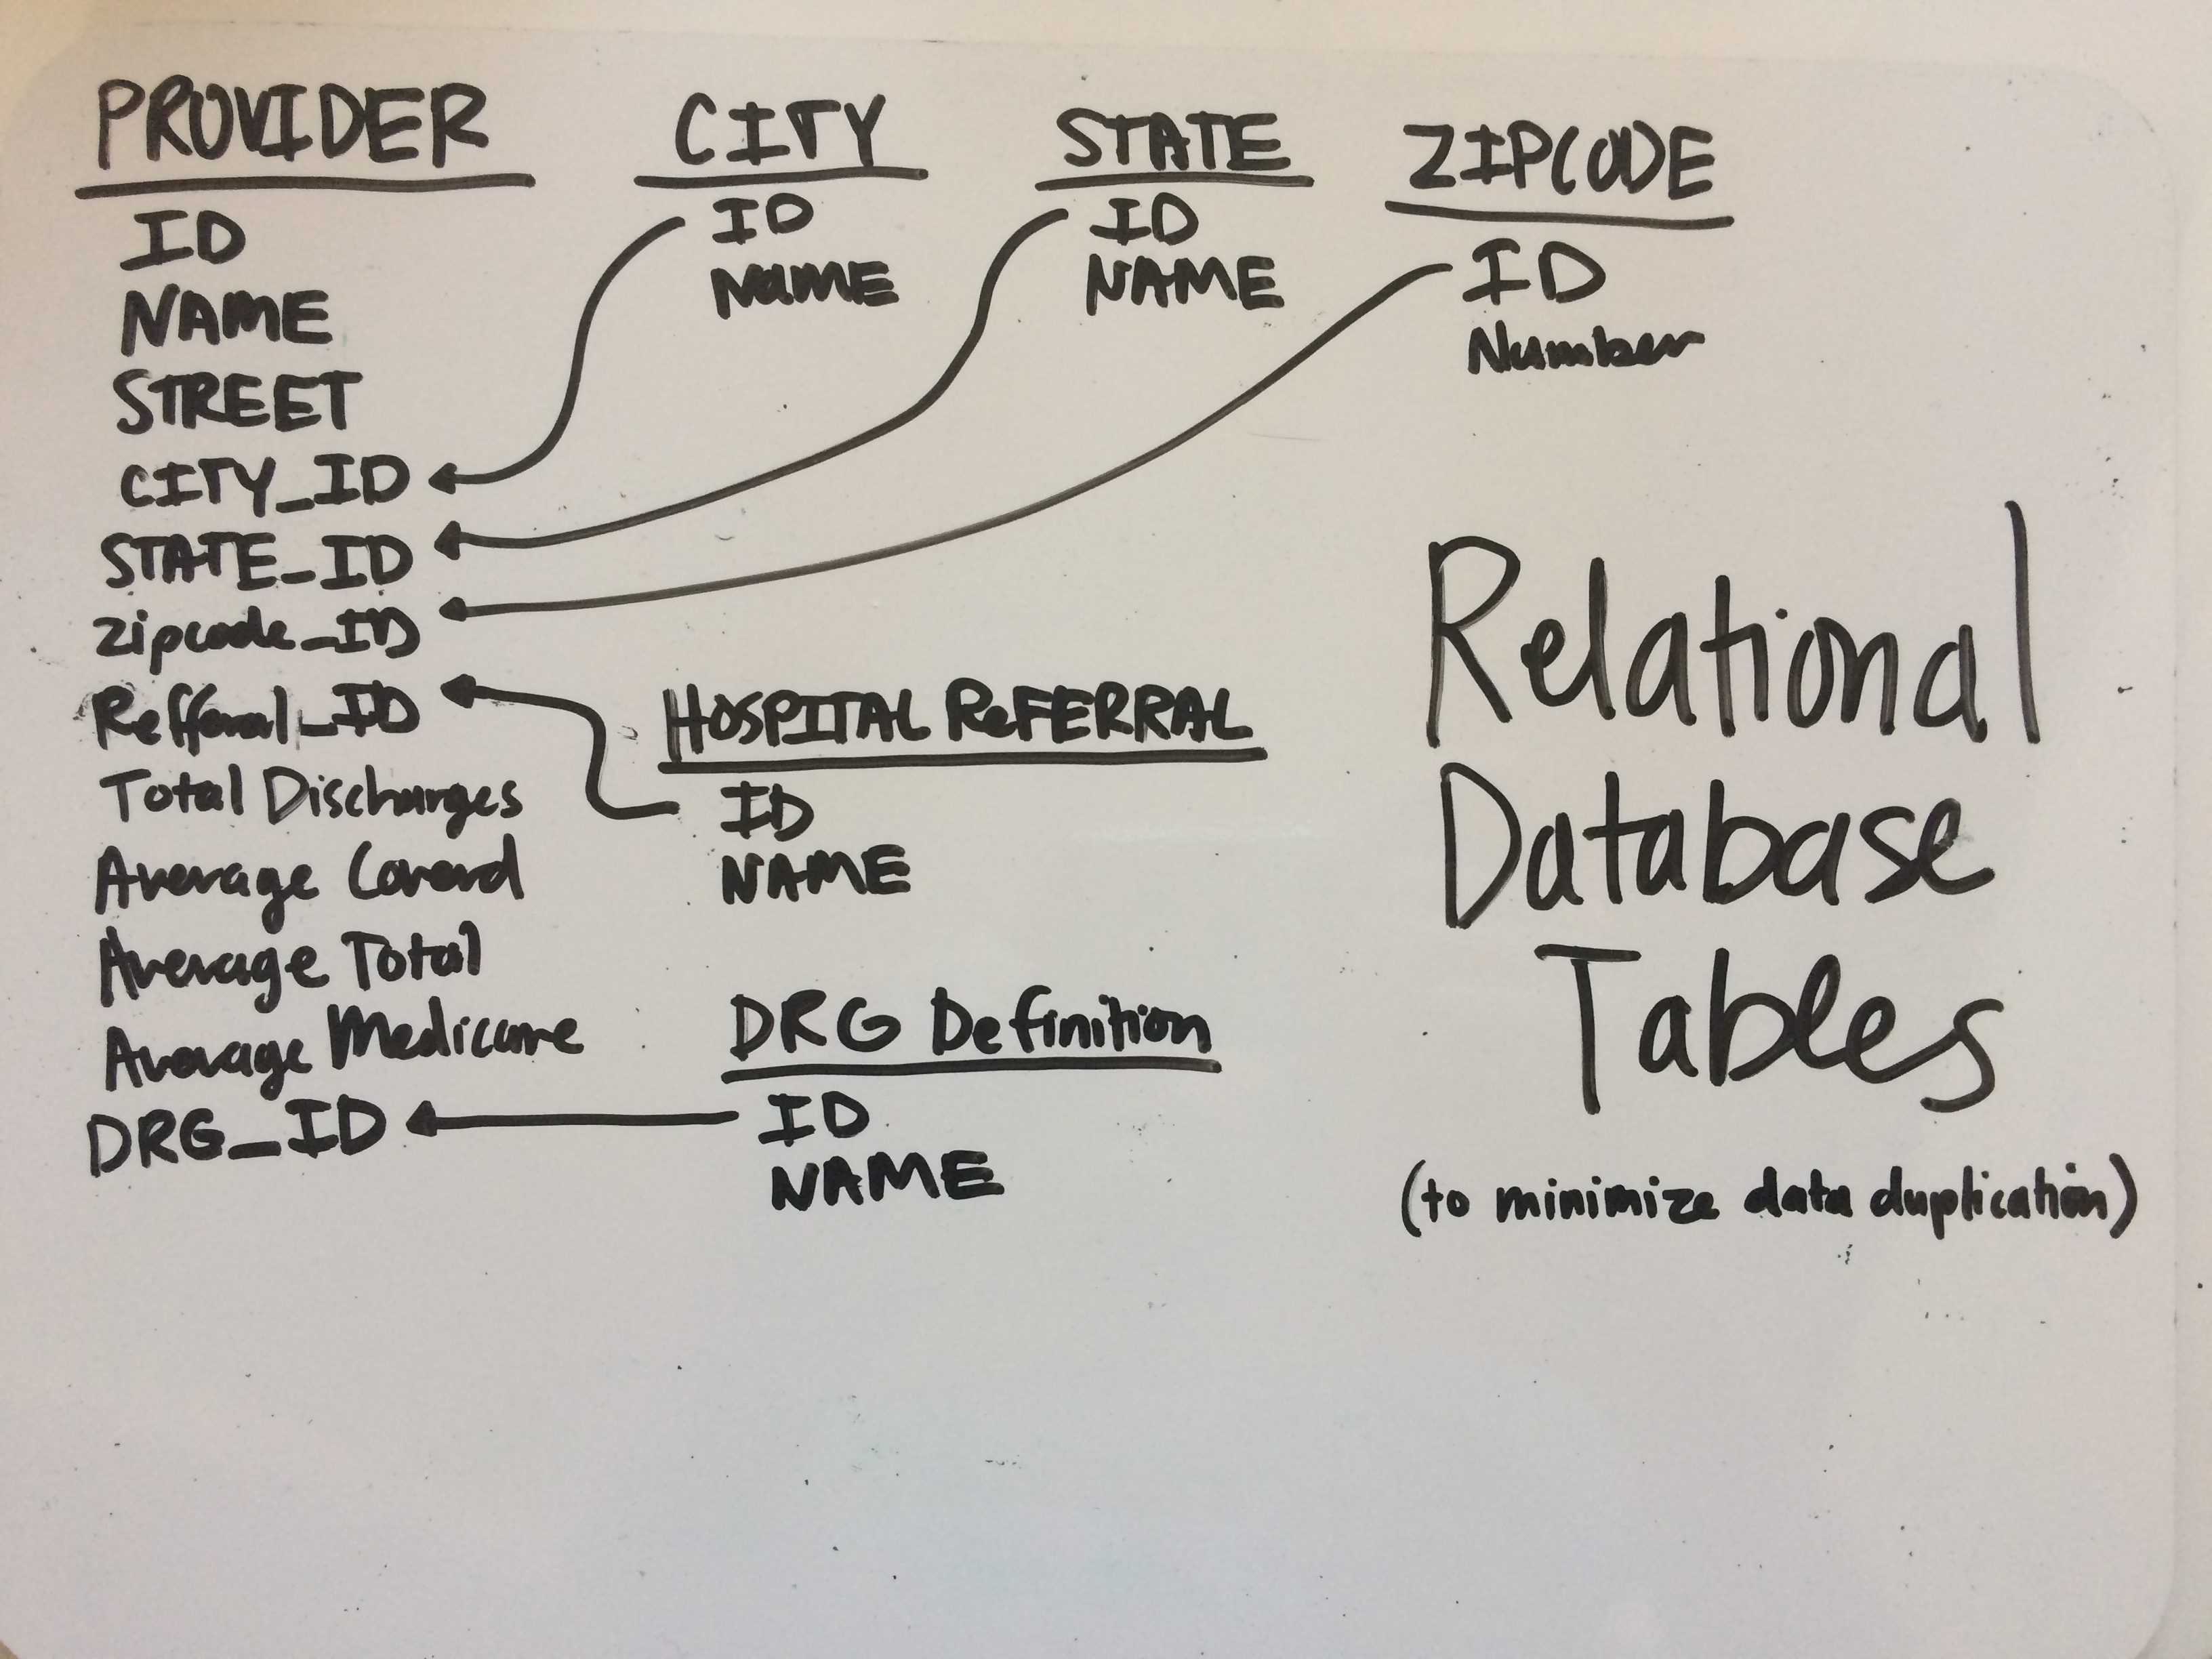 PROVIDER
ID
NAME
STREET
CITY_ID
STATE_ID
Zipcode_ID
Refferal_ID
Total Discharges
Average Covered
Average Total
Average Medicare
DRG_ID
CITY
ID
NAME
STATE
ID
NAME
ZIPCODE
ID
Number
HOSPITAL ReFERRAL
ID
NAME
DRG Definition
ID
NAME
Relational
Database
Tables
(to minimize data duplication)